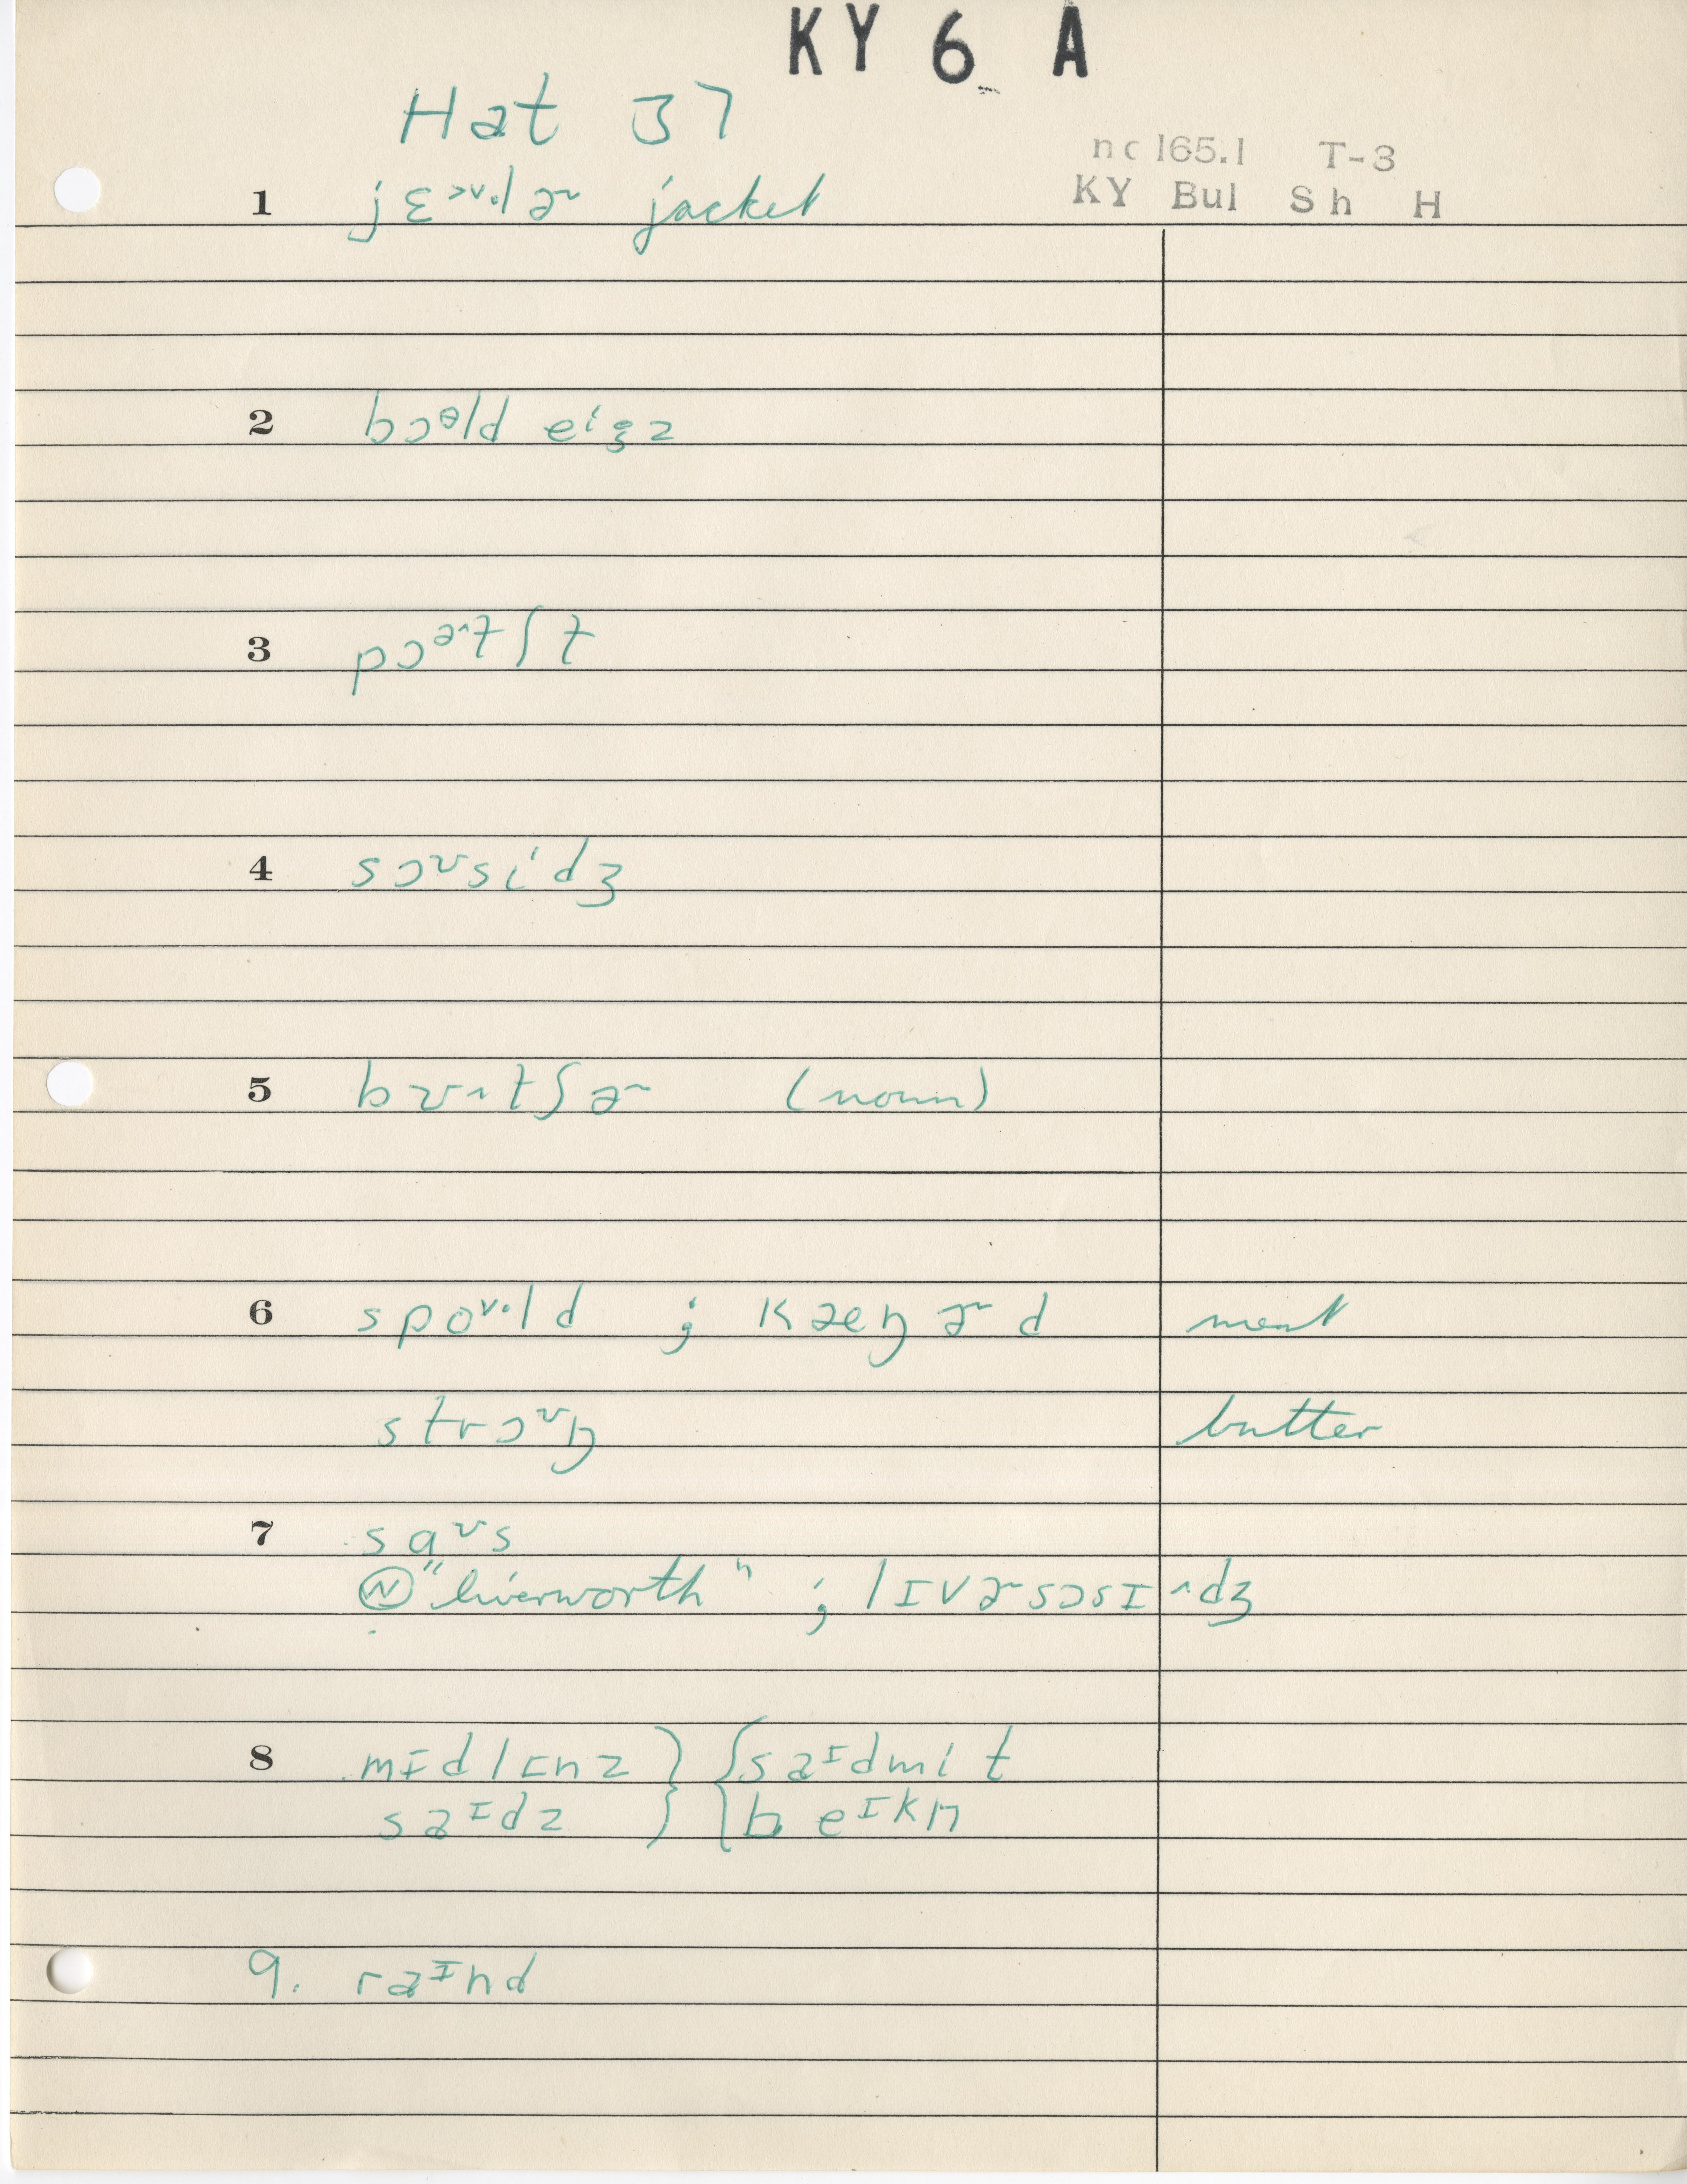 KY 6 A
Hat 37
nc 165.1 T-3
KY Bul Sh H
1 jɛ˃˅·lɚ jacket
2 bɔᶿld eigz
3 pɔɚ^tʃt
4 sɔʊsidʒ
5 bʊ^tʃɚ (noun)
6 spo˅·ld ; kæŋɚd meat
strɔʊŋ butter
7 saʊs
Ⓝ "liverworth" ; lɪvɚsɔsɪ^dʒ
8 mɪdlɪnz } { saɪdmit
saɪdz } { beɪkn
9. raɪnd